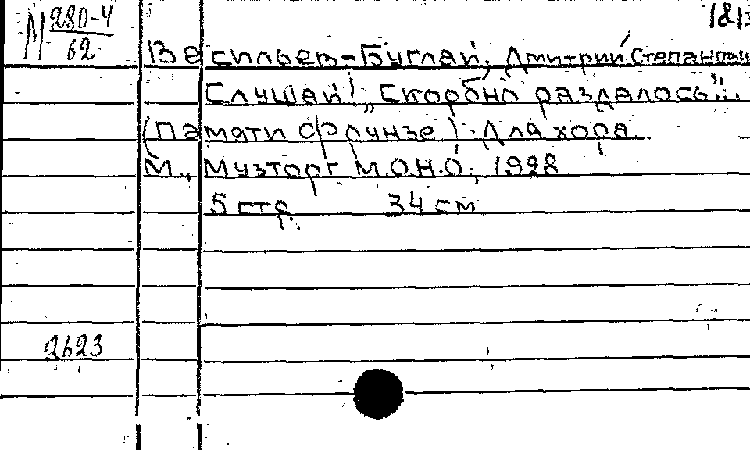 М 280-4
62
1813
Васильев-Буглай, Дмитрий Степанович
Слушай! „Скорбно раздалось"...
(Памяти Фрунзе). Для хора.
М., Музторг М.О.Н.О., 1928
5 стр. 34 см
2623